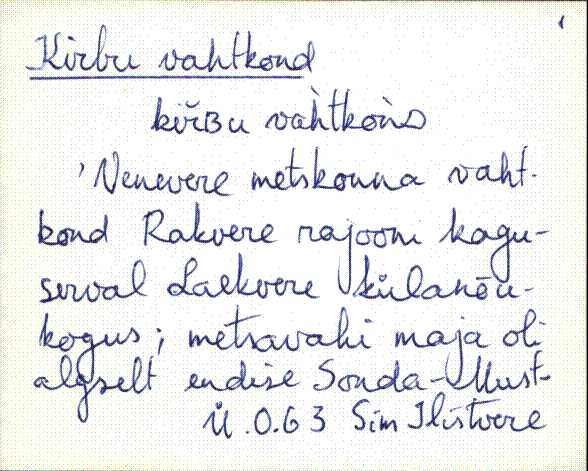 Kirbu vahtkond
kiřʙu vàhtkòǹᴅ
'Venevere metskonna vaht-
kond Rakvere rajooni kagu-
serval Laekvere külanõu-
kogus; metsavahi maja oli
algselt endise Sonda-Must-
Ü.O.63 Sim Ilistvere